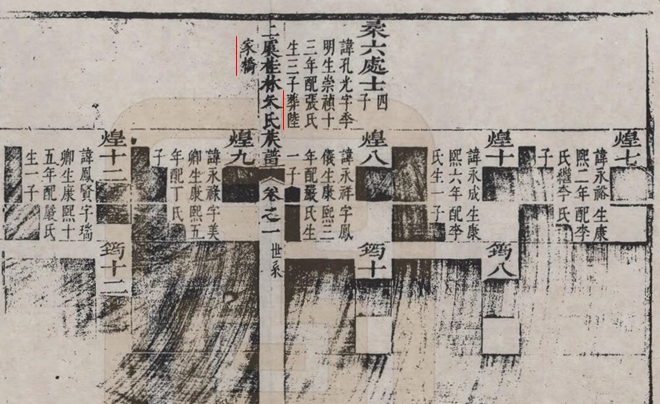 六處士
四
子
諱孔光字季
明生崇禎十
三年配張氏
生三子葬陸
家橋
上虞桂林朱氏族譜
卷之一
世系
煌七
諱永裕生康
熙二年配李
氏繼李氏
子
煌十
諱永成生康
熙六年配李
氏生一子
筠八
煌八
諱永祥字鳳
儀生康熙三
年配嚴氏生
一子
筠十
煌九
諱永祿字美
卿生康熙五
年配丁氏
子
煌十二
諱鳳賢字瑞
卿生康熙十
五年配嚴氏
生一子
筠十二